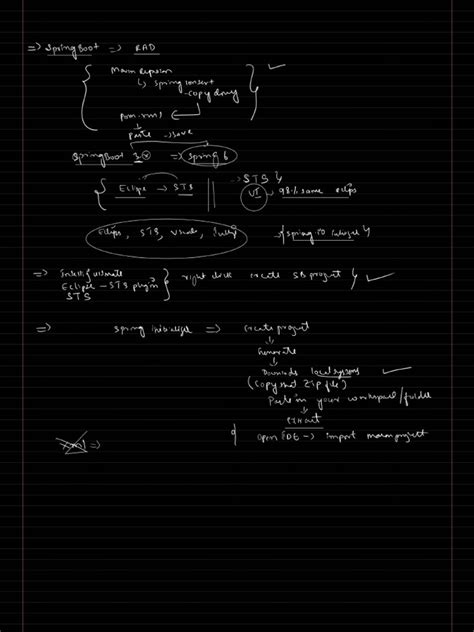 => SpringBoot => RAD
Maven Repersion
↳ Spring context
- copy dency
Pom.xml
Paste -> save
SpringBoot 3.x => Spring 6
{ Eclipse -> STS || -> STS
UI 98% same eclips
Eclips, STS, vscode,
spring.io
=> IntelliJ ultimate
Eclipse - STS plugin } right click create SB project ✓
STS
=> Spring initializer => create project
↓
Generate
↓
Downloads local systems ✓
(Copy that ZIP file)
Paste in your workspace/folder
↓
extract
open IDE -> import maven project
=>